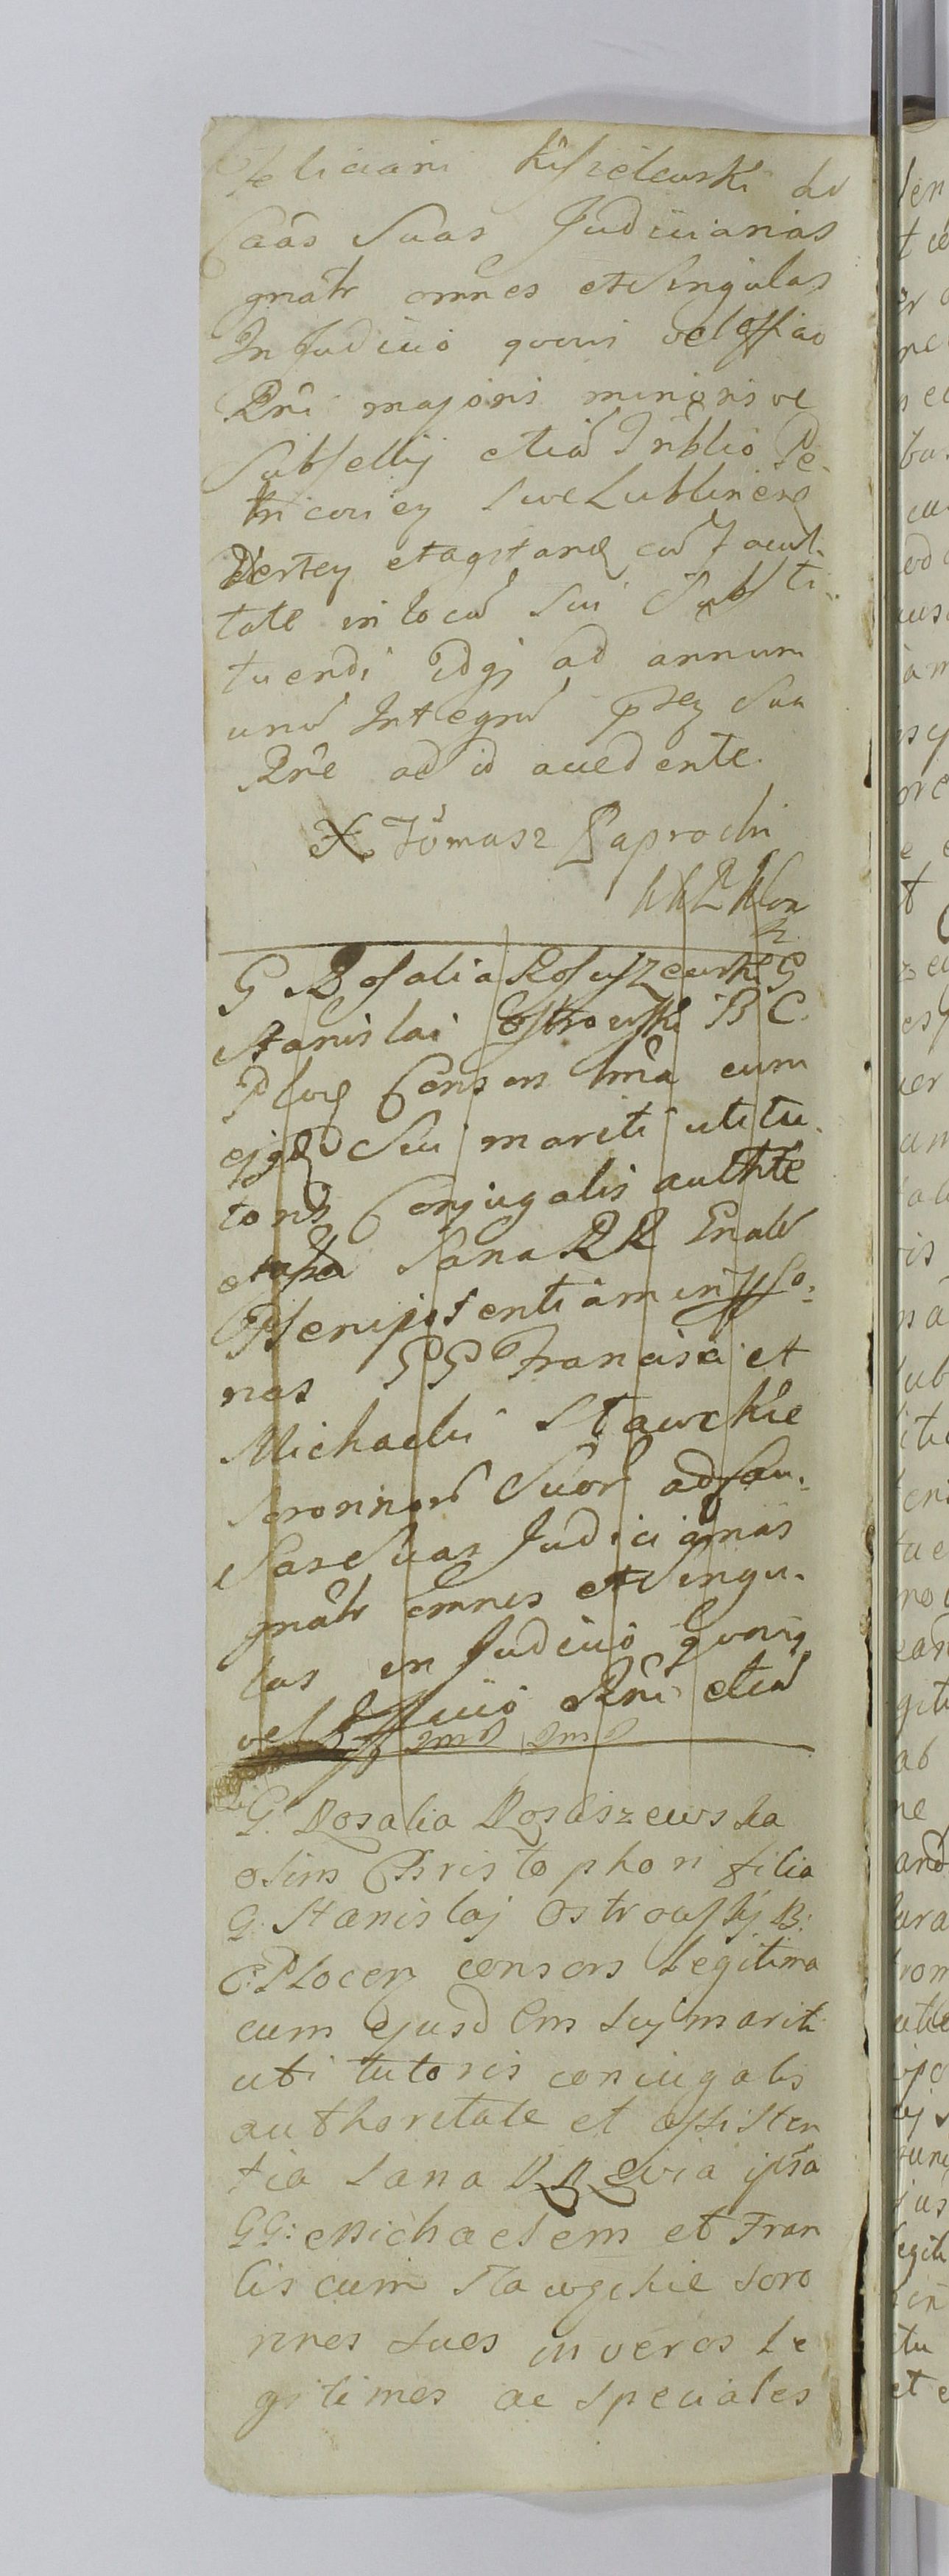 Feliciani Kisielewski ad
Caas Suas Judiciarias
gnâlr omnes et Singulas
In Judicio quovi vel officio
Rni majoris minorisve
Subsellij etiâ Trîblio Pe
tricovien sive Lublinen
Verten et agitand cû facul-
tate in locû sui Substi-
tuendi Idqj ad annum
unû Integrû Sua
Rne ad id accedente.
X Tomasz Paprocki
G Rosalia Rosuszewski G
Stanislai Ostrowski B C.
Ploc Consors ltma cum
ejusd Sui mariti uti tu-
toris Conjugalis authte
Sana RR Enalr
Plenipotentiam in Pso-
nas GG Francisci et
Michaelis Stawskie
Soronnorû Suorû ad Cau-
sas Suas Judiciarias
gnâlr omnes et Singu-
las in Judicio quovis
vel Officio Rni etiâ
G. Rosalia Rosuszewska
olim Christophori filia
G. Stanislaj Ostrowskij B:
C: Plocen consors Legitima
cum ejusdem suj mariti
uti tutoris coniugalis
authoritate et assisten
tia Sana RR Qvia ipsa
GG: Michaelem et Fran
ciscum Stawgskie Soro
nnes Suos in veros Le
gitimos ac speciales